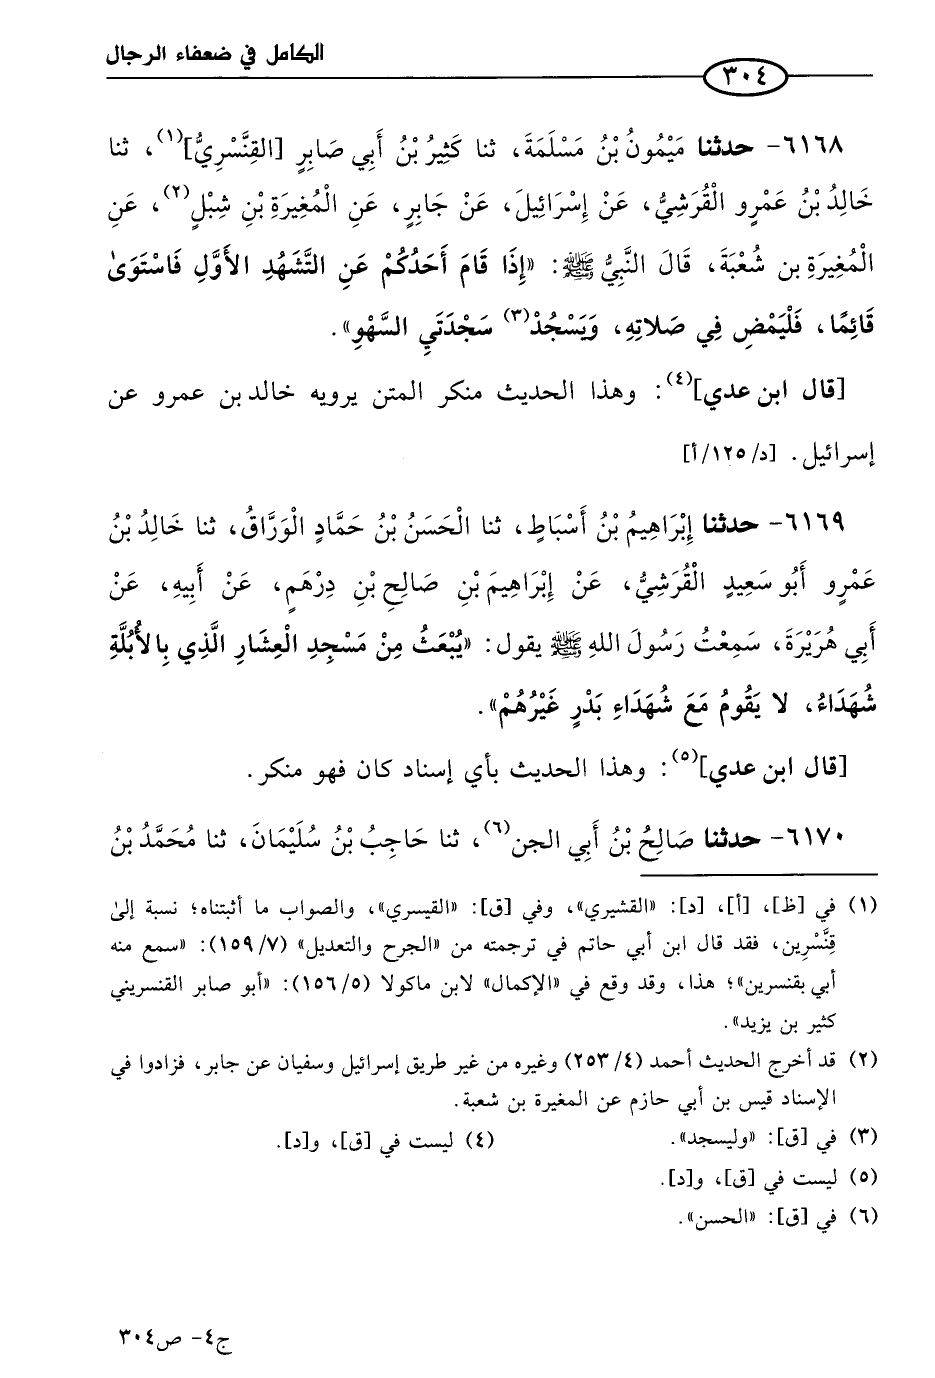 الكامل في ضعفاء الرجال
٣٠٤
٦١٦٨- حدثنا مَيْمُونُ بْنُ مَسْلَمَةَ، ثنا كَثِيرُ بْنُ أَبِي صَابِرٍ [القِنَّسْرِيُّ](١)، ثنا
خَالِدُ بْنُ عَمْرٍو الْقُرَشِيُّ، عَنْ إِسْرَائِيلَ، عَنْ جَابِرٍ، عَنِ الْمُغِيرَةِ بْنِ شِبْلٍ(٢)، عَنِ
الْمُغِيرَةِ بن شُعْبَةَ، قَالَ النَّبِيُّ ﷺ: «إِذَا قَامَ أَحَدُكُمْ عَنِ التَّشَهُّدِ الأَوَّلِ فَاسْتَوَىٰ
قَائِمًا، فَلْيَمْضِ فِي صَلاتِهِ، وَيَسْجُدْ(٣) سَجْدَتَيِ السَّهْوِ».
[قال ابن عدي](٤): وهذا الحديث منكر المتن يرويه خالد بن عمرو عن
إسرائيل. [د/١٢٥/أ]
٦١٦٩- حدثنا إِبْرَاهِيمُ بْنُ أَسْبَاطٍ، ثنا الْحَسَنُ بْنُ حَمَّادٍ الْوَرَّاقُ، ثنا خَالِدُ بْنُ
عَمْرٍو أَبُو سَعِيدٍ الْقُرَشِيُّ، عَنْ إِبْرَاهِيمَ بْنِ صَالِحِ بْنِ دِرْهَمٍ، عَنْ أَبِيهِ، عَنْ
أَبِي هُرَيْرَةَ، سَمِعْتُ رَسُولَ اللهِ ﷺ يقول: «يُبْعَثُ مِنْ مَسْجِدِ الْعِشَارِ الَّذِي بِالأُبُلَّةِ
شُهَدَاءُ، لا يَقُومُ مَعَ شُهَدَاءِ بَدْرٍ غَيْرُهُمْ».
[قال ابن عدي](٥): وهذا الحديث بأي إسناد كان فهو منكر.
٦١٧٠- حدثنا صَالِحُ بْنُ أَبِي الجن(٦)، ثنا حَاجِبُ بْنُ سُلَيْمَانَ، ثنا مُحَمَّدُ بْنُ
(١) في [ظ]، [أ]، [د]: «القشيري»، وفي [ق]: «القيسري»، والصواب ما أثبتناه؛ نسبة إلىٰ
قِنَّسْرِين، فقد قال ابن أبي حاتم في ترجمته من «الجرح والتعديل» (١٥٩/٧): «سمع منه
أبي بقنسرين»؛ هذا، وقد وقع في «الإكمال» لابن ماكولا (١٥٦/٥): «أبو صابر القنسريني
كثير بن يزيد».
(٢) قد أخرج الحديث أحمد (٢٥٣/٤) وغيره من غير طريق إسرائيل وسفيان عن جابر، فزادوا في
الإسناد قيس بن أبي حازم عن المغيرة بن شعبة.
(٣) في [ق]: «وليسجد». (٤) ليست في [ق]، و[د].
(٥) ليست في [ق]، و[د].
(٦) في [ق]: «الحسن».
ج٤- ص٣٠٤